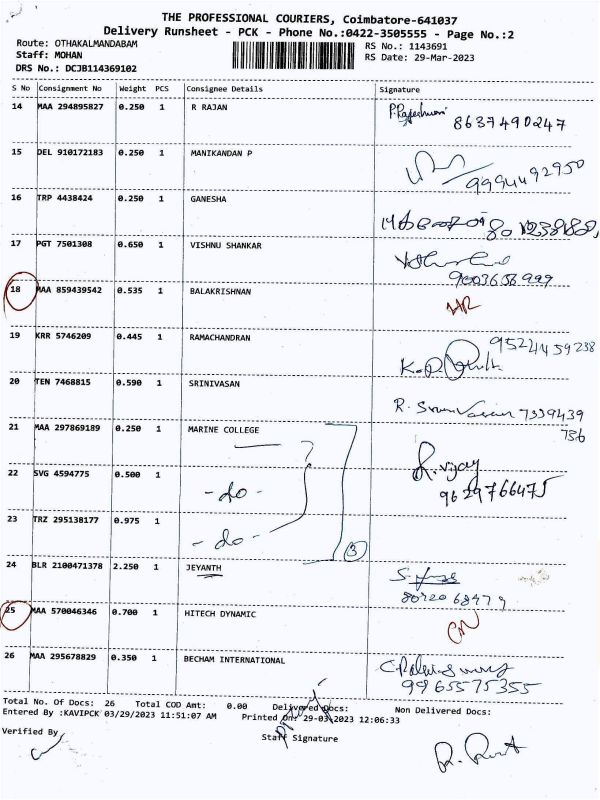 THE PROFESSIONAL COURIERS, Coimbatore-641037
Delivery Runsheet - PCK - Phone No.:0422-3505555 - Page No.:2
Route: OTHAKALMANDABAM
RS No.: 1143691
Staff: MOHAN
RS Date: 29-Mar-2023
DRS No.: DCJB114369102
S No Consignment No Weight PCS Consignee Details Signature
14 MAA 294895827 0.250 1 R RAJAN 8637490247
15 DEL 910172183 0.250 1 MANIKANDAN P 9994492950
16 TRP 4438424 0.250 1 GANESHA
17 PGT 7501308 0.650 1 VISHNU SHANKAR
9003658999
18 MAA 859439542 0.535 1 BALAKRISHNAN
19 KRR 5746209 0.445 1 RAMACHANDRAN 9524459238
20 TEN 7468815 0.590 1 SRINIVASAN R. Srinivasan 7339439
736
21 MAA 297869189 0.250 1 MARINE COLLEGE
22 SVG 4594775 0.500 1 -do- R. Vijay
9629766475
23 TRZ 295138177 0.975 1 -do- 3
24 BLR 2100471378 2.250 1 JEYANTH
25 MAA 570046346 0.700 1 HITECH DYNAMIC
26 MAA 295678829 0.350 1 BECHAM INTERNATIONAL
9965575355
Total No. Of Docs: 26 Total COD Amt: 0.00 Delivered Docs: Non Delivered Docs:
Entered By :KAVIPCK 03/29/2023 11:51:07 AM Printed On: 29-03-2023 12:06:33
Verified By
Staff Signature